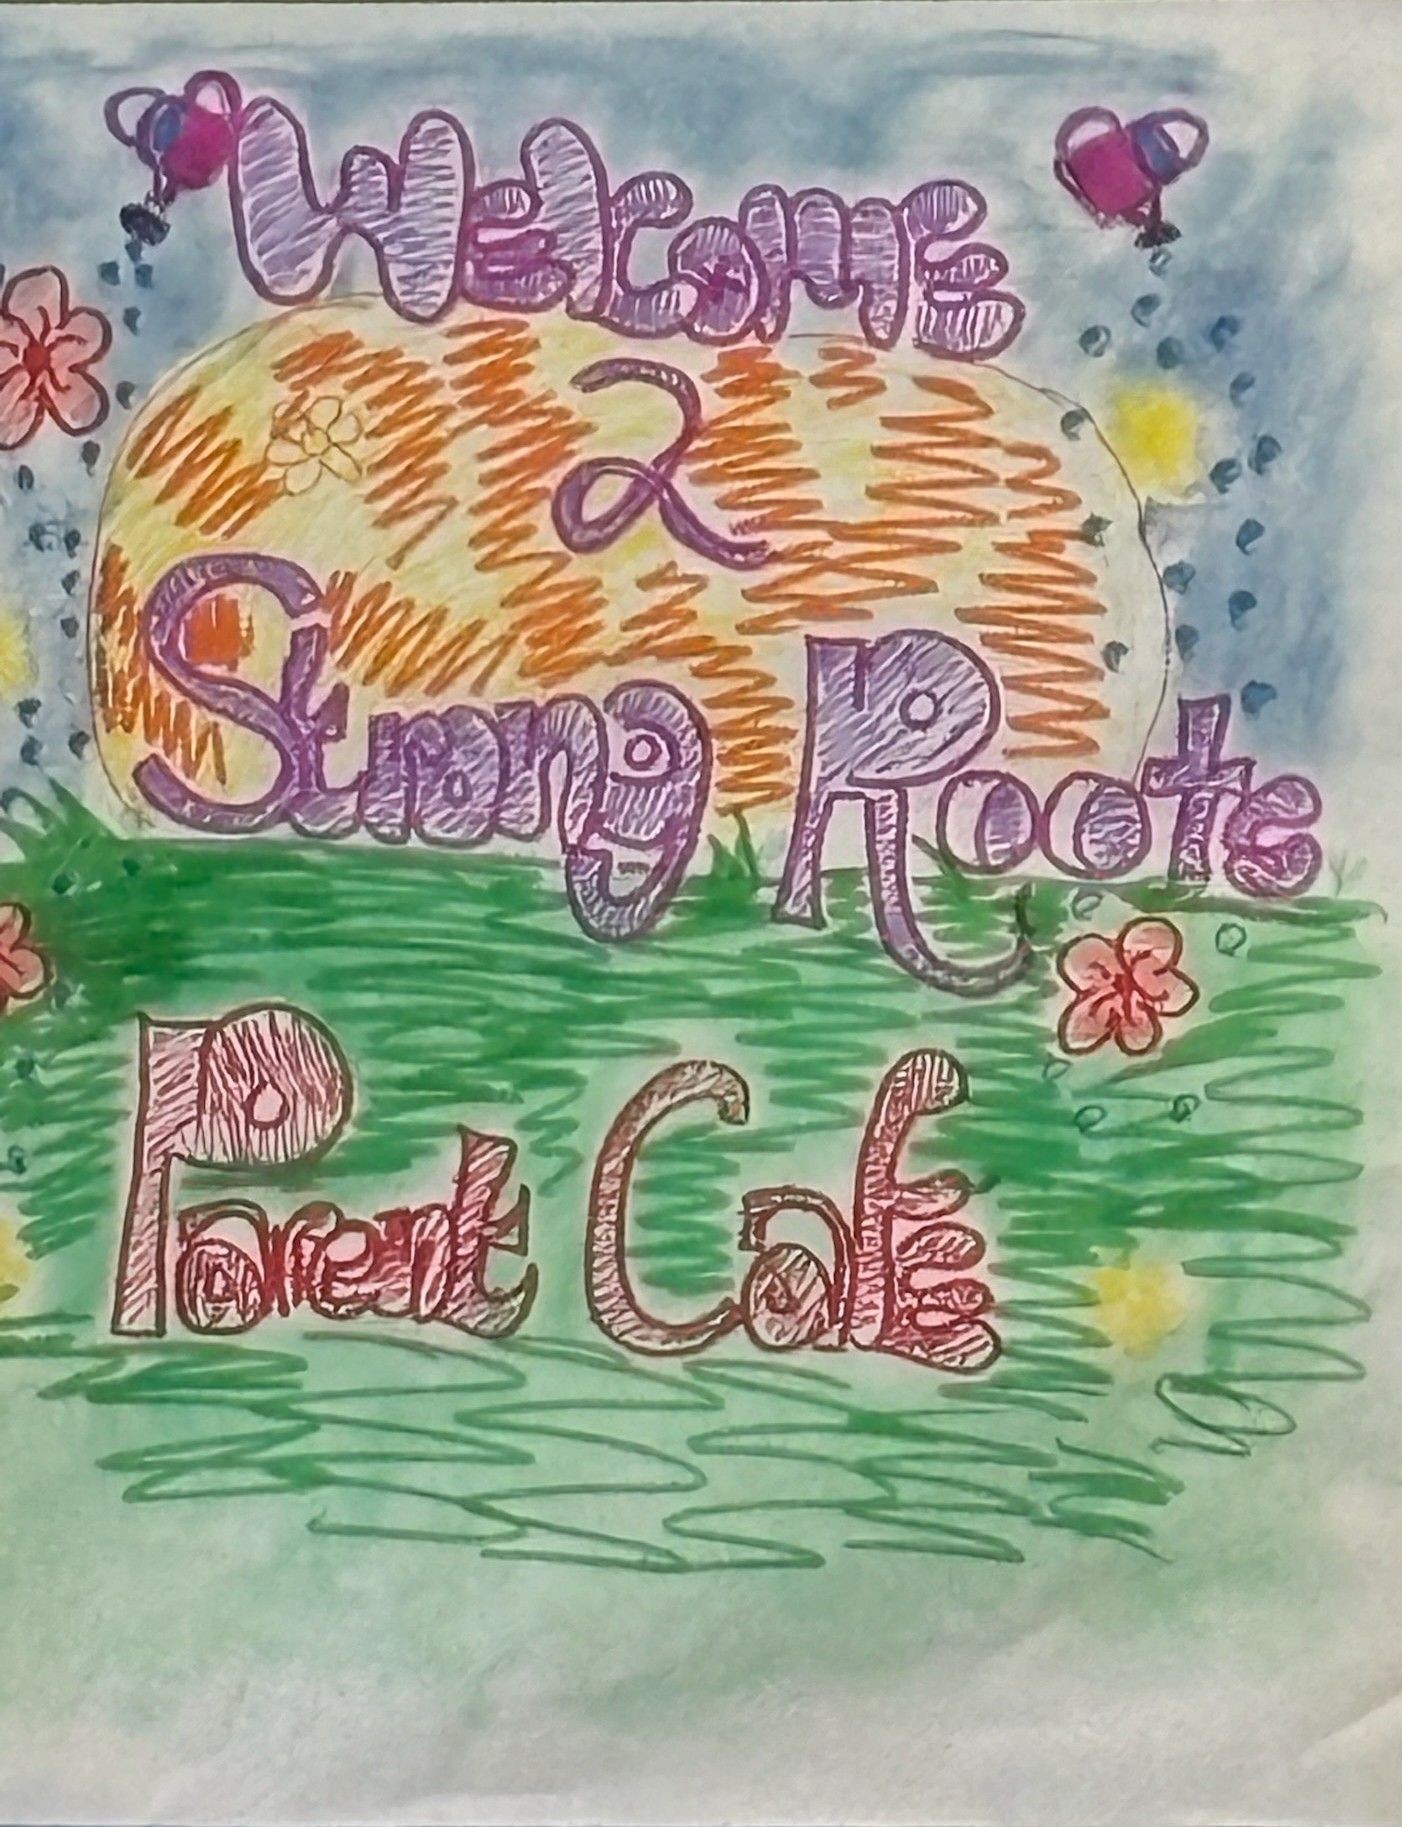 Welcome
2
Strong Roots
Parent Cafe